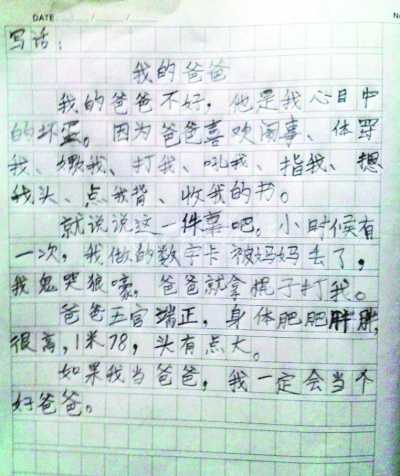 DATE / /
写话：
我的爸爸
我的爸爸不好，他是我心目中
的坏蛋。因为爸爸喜欢闹事、体罚
我、嘞我、打我、吼我、指我、
我头、点我背、收我的书。
就说说这一件事吧，小时候有
一次，我做的数字卡被妈妈丢了，
我鬼哭狼嚎，爸爸就拿棍子打我。
爸爸五官端正，身体肥肥胖胖，
很高，1米78，头有点大。
如果我当爸爸，我一定会当个
好爸爸。